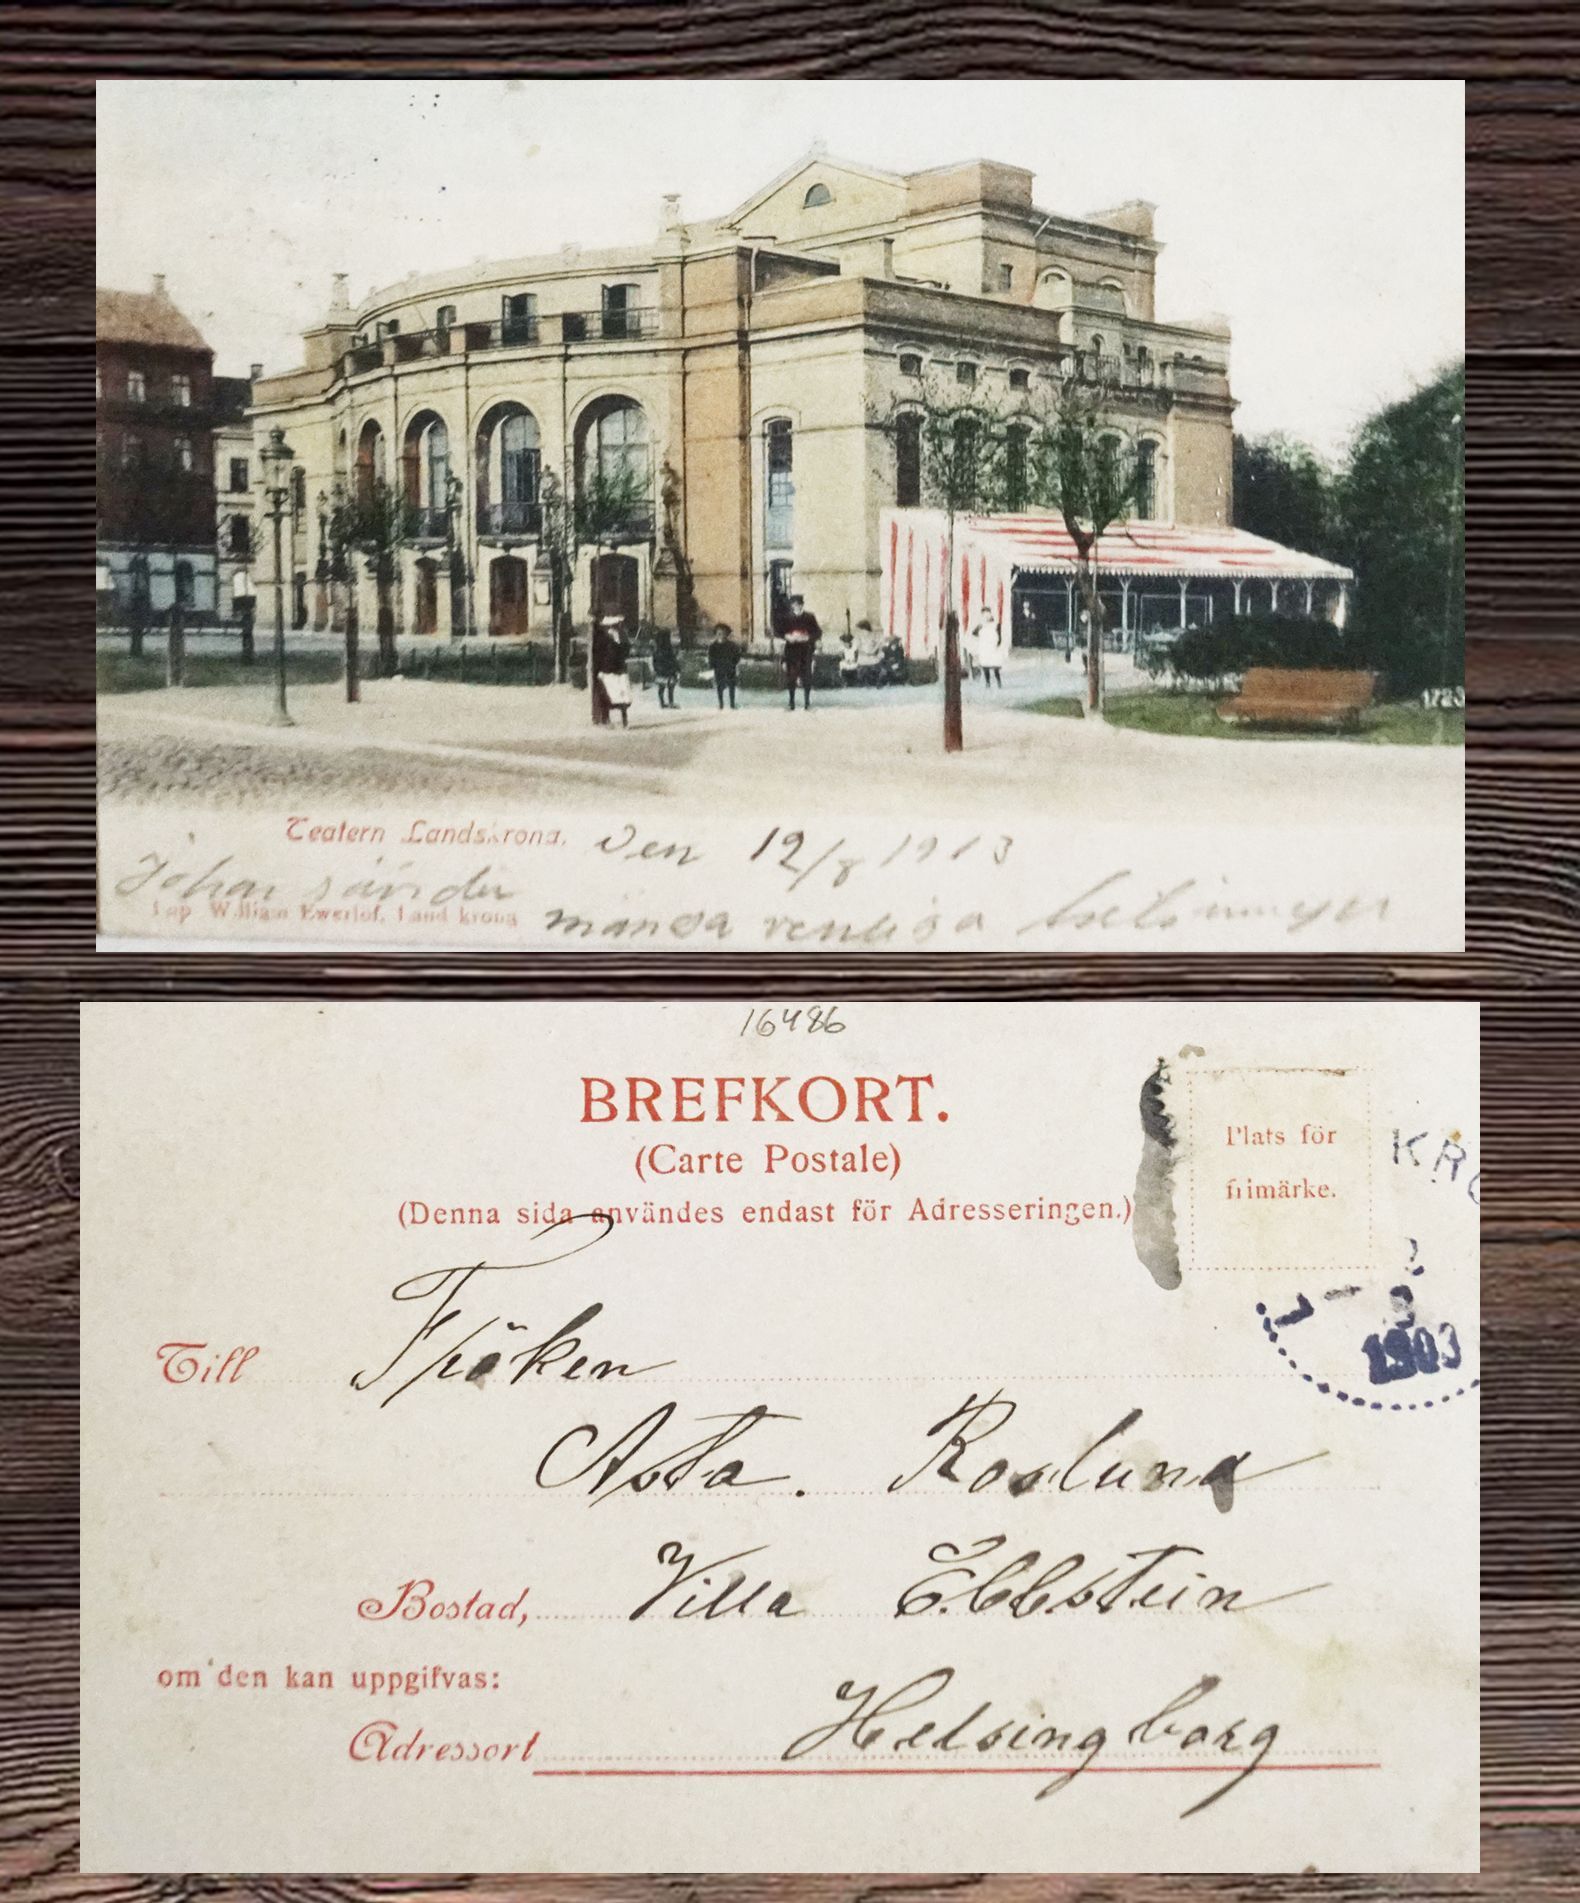 1728
Teatern Landskrona. Den 12/8 1913
Johan sänder
Imp. William Ewerlöf, Landskrona
många venliga helsningar
16486
BREFKORT.
(Carte Postale)
(Denna sida användes endast för Adresseringen.)
Plats för
frimärke.
KRO
1903
Till Fröken
Asta. Roslund
Bostad, Villa Ebbstein
om den kan uppgifvas:
Adressort Helsingborg